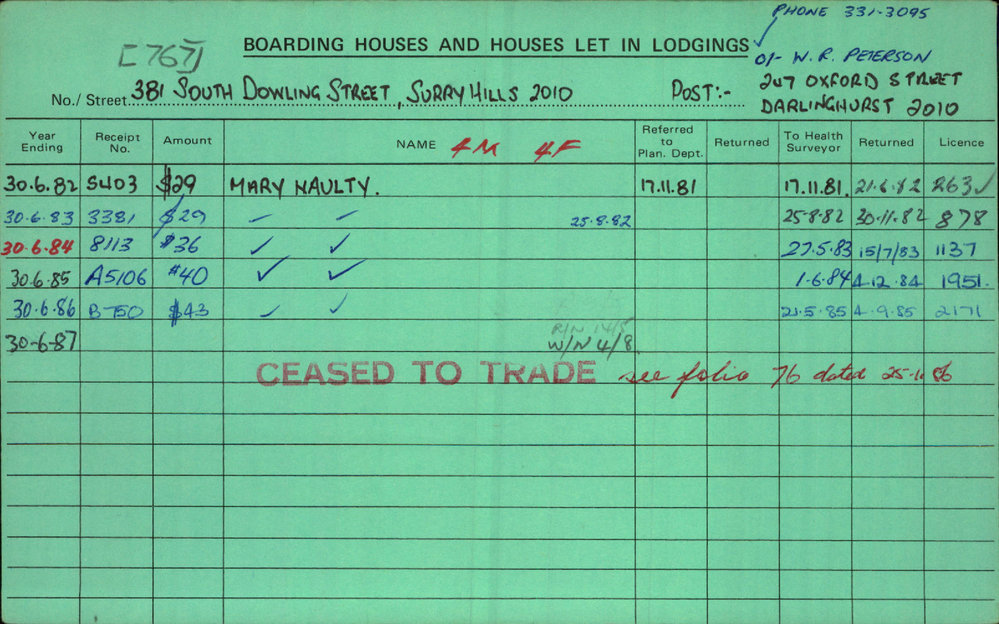 PHONE 331-3095
[767]
BOARDING HOUSES AND HOUSES LET IN LODGINGS
C/- W. R. PETERSON
No./ Street 381 SOUTH DOWLING STREET, SURRY HILLS 2010 POST:- 247 OXFORD STREET
DARLINGHURST 2010
Year Ending Receipt No. Amount NAME 4M 4F Referred to Plan. Dept. Returned To Health Surveyor Returned Licence
30.6.82 5403 $29 MARY NAULTY. 17.11.81 17.11.81. 21.6.82 263 ✓
30.6.83 3381 $29 25.8.82 25.8.82 30.11.82 878
30.6.84 8113 $36 ✓ ✓ 27.5.83 15/7/83 1137
30.6.85 A5106 $40 ✓ ✓ 1.6.84 4.12.84 1951.
30.6.86 B750 $43 ✓ ✓ 21.5.85 4.9.85 2171
R/N 14/5
30-6-87 W/N 4/8.
CEASED TO TRADE see folio 76 dated